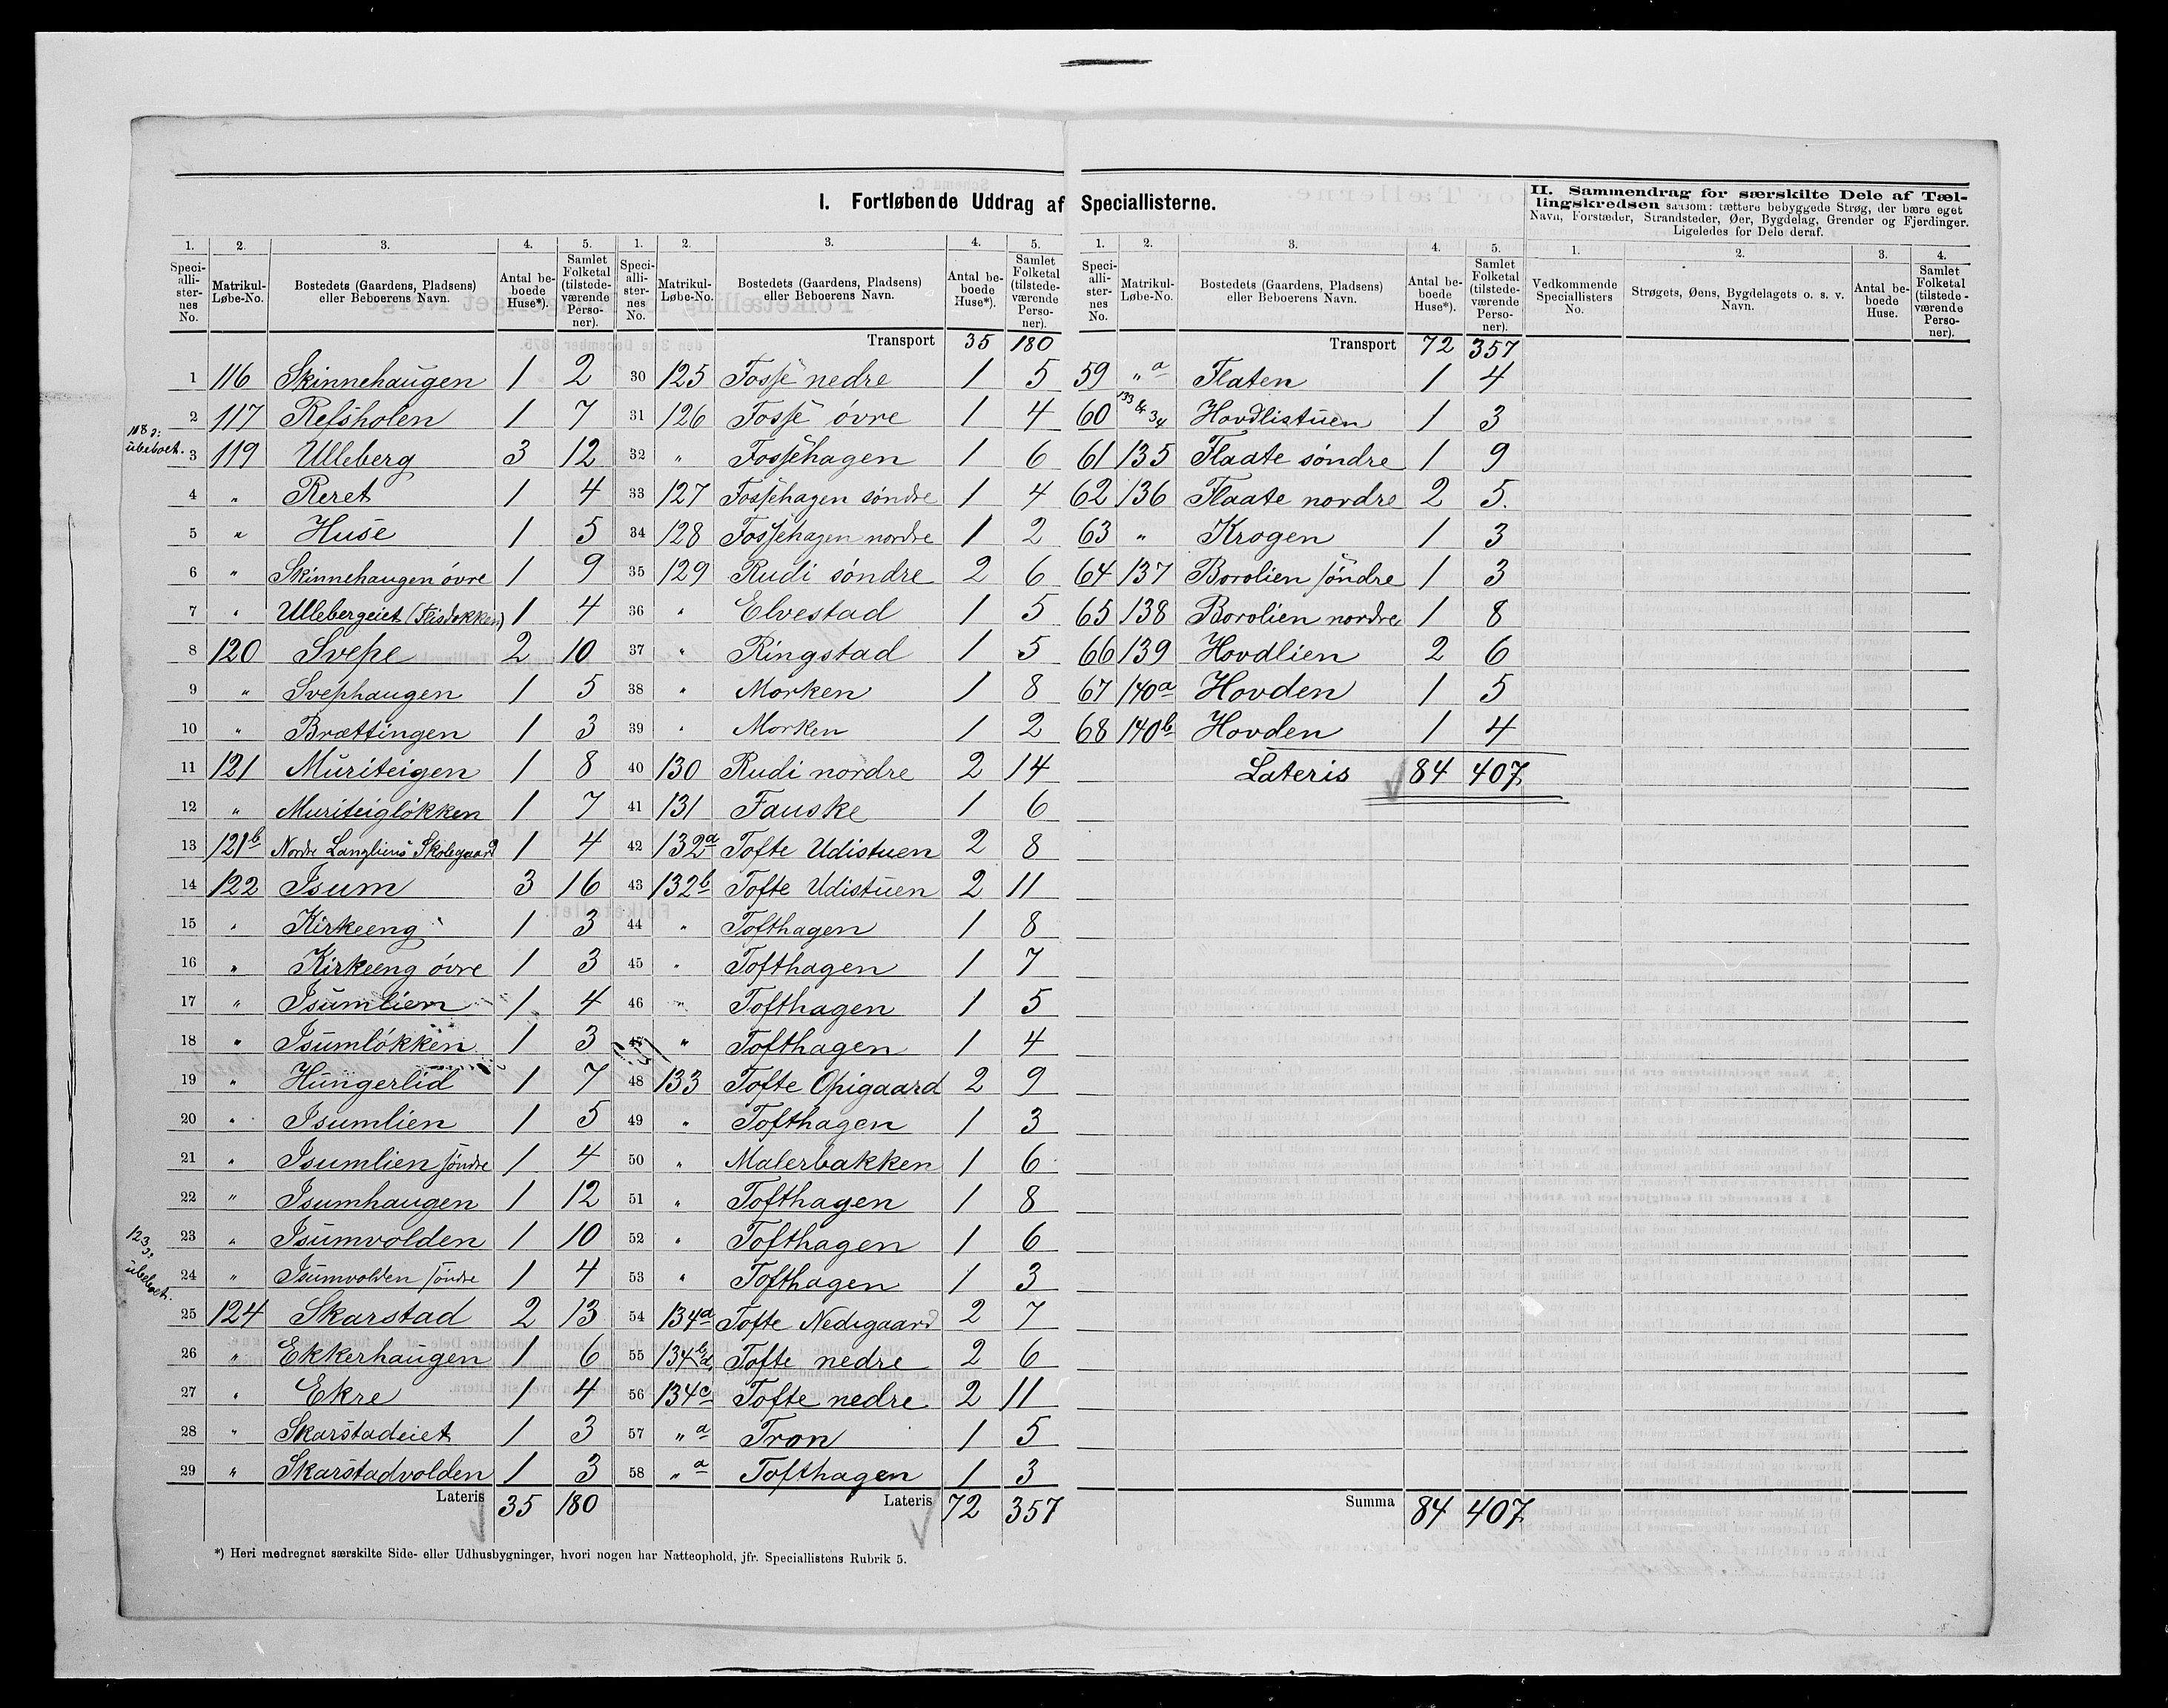 I. Fortløbende Uddrag af Speciallisterne.
II. Sammendrag for særskilte Dele af Tællingskredsen saasom: tættere bebyggede Strøg, der bære eget
Navn, Forstæder, Strandsteder, Øer, Bygdelag, Grender og Fjerdinger.
Ligeledes for Dele deraf.
1. 2. 3. 4. 5.
Speciallisternes No. Matrikul-Løbe-No. Bostedets (Gaardens, Pladsens) eller Beboerens Navn. Antal beboede Huse*). Samlet Folketal (tilstedeværende Personer).
1 116 Skinnehaugen 1 2
2 117 Refsholen 1 7
118 ɔ: ubeboet.
3 119 Ulleberg 3 12
4 " Reret 1 4
5 " Huse 1 5
6 " Skinnehaugen øvre 1 9
7 " Ullebergeiet (Flisdokken) 1 4
8 120 Svepe 2 10
9 " Svephaugen 1 5
10 " Brættingen 1 3
11 121 Muriteigen 1 8
12 " Muriteigløkken 1 7
13 121b Nordre Langliens Skolegaard 1 4
14 122 Isum 3 16
15 " Kirkeeng 1 3
16 " Kirkeeng øvre 1 3
17 " Isumlien 1 4
18 " Isumløkken 1 3
19 " Hungerlid 1 7
20 " Isumlien 1 5
21 " Isumlien søndre 1 4
22 " Isumhaugen 1 12
23 " Isumvolden 1 10
123 ɔ: ubeboet.
24 " Isumvolden søndre 1 4
25 124 Skarstad 2 13
26 " Ekkerhaugen 1 6
27 " Ekre 1 4
28 " Skarstadeiet 1 3
29 " Skarstadvolden 1 3
Lateris 35 180
1. 2. 3. 4. 5.
Speciallisternes No. Matrikul-Løbe-No. Bostedets (Gaardens, Pladsens) eller Beboerens Navn. Antal beboede Huse*). Samlet Folketal (tilstedeværende Personer).
Transport 35 180
30 125 Fosse nedre 1 5
31 126 Fosse øvre 1 4
32 " Fossehagen 1 6
33 127 Fossehagen søndre 1 4
34 128 Fossehagen nordre 1 2
35 129 Rudi søndre 2 6
36 " Elvestad 1 5
37 " Ringstad 1 5
38 " Morken 1 8
39 " Morken 1 2
40 130 Rudi nordre 2 14
41 131 Fauske 1 6
42 132a Tofte Udistuen 2 8
43 132b Tofte Udistuen 2 11
44 " Tofthagen 1 8
45 " Tofthagen 1 7
46 " Tofthagen 1 5
47 " Tofthagen 1 4
48 133 Tofte Opigaard 2 9
49 " Tofthagen 1 3
50 " Malerbakken 1 6
51 " Tofthagen 1 8
52 " Tofthagen 1 6
53 " Tofthagen 1 3
54 134a Tofte Nedigaard 2 7
55 134b d Tofte nedre 2 6
56 134c Tofte nedre 2 11
57 " a Tron 1 5
58 " a Tofthagen 1 3
Lateris 72 357
1. 2. 3. 4. 5.
Speciallisternes No. Matrikul-Løbe-No. Bostedets (Gaardens, Pladsens) eller Beboerens Navn. Antal beboede Huse*). Samlet Folketal (tilstedeværende Personer).
Transport 72 357
59 " a Flaten 1 4
60 133 & 34 Hovdlistuen 1 3
61 135 Flaate søndre 1 9
62 136 Flaate nordre 2 5.
63 " Krogen 1 3
64 137 Borolien søndre 1 3
65 138 Borolien nordre 1 8
66 139 Hovdlien 2 6
67 140a Hovden 1 5
68 140b Hovden 1 4
Lateris 84 407
Summa 84 407
1. 2. 3. 4.
Vedkommende Speciallisters No. Strøgets, Øens, Bygdelagets o. s. v. Navn. Antal beboede Huse. Samlet Folketal (tilstedeværende Personer).
*) Heri medregnet særskilte Side- eller Udhusbygninger, hvori nogen har Natteophold, jfr. Speciallistens Rubrik 5.